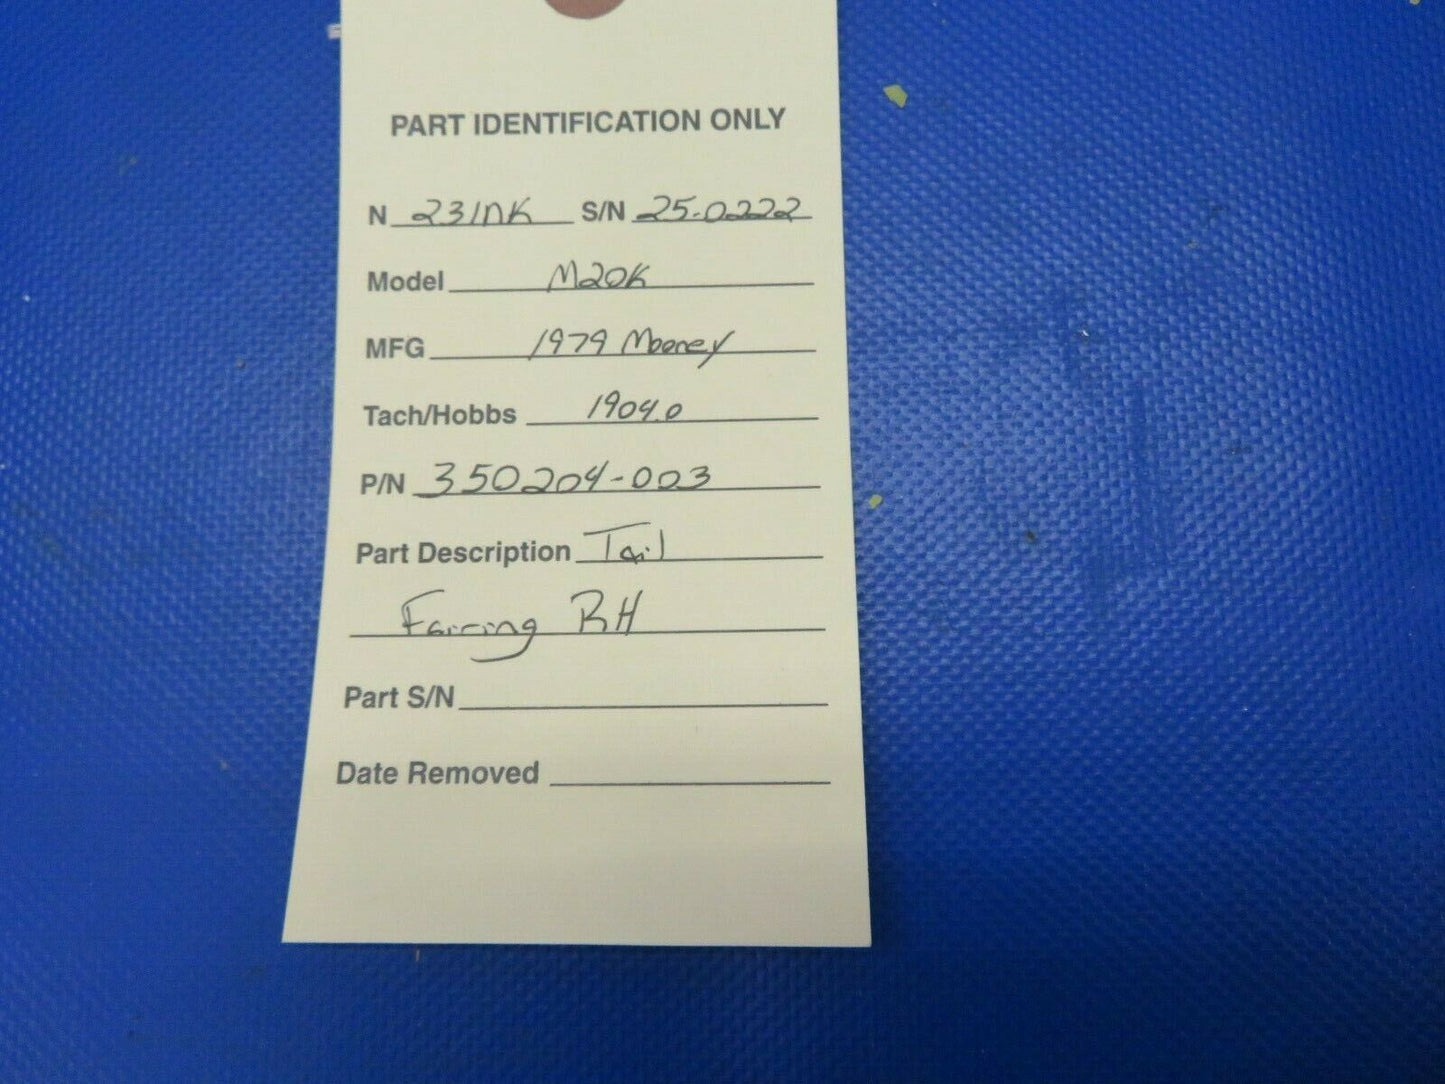 PART IDENTIFICATION ONLY
N 231NK S/N 25-0222
Model M20K
MFG 1979 Mooney
Tach/Hobbs 1904.0
P/N 350204-003
Part Description Tail
Fairing RH
Part S/N
Date Removed